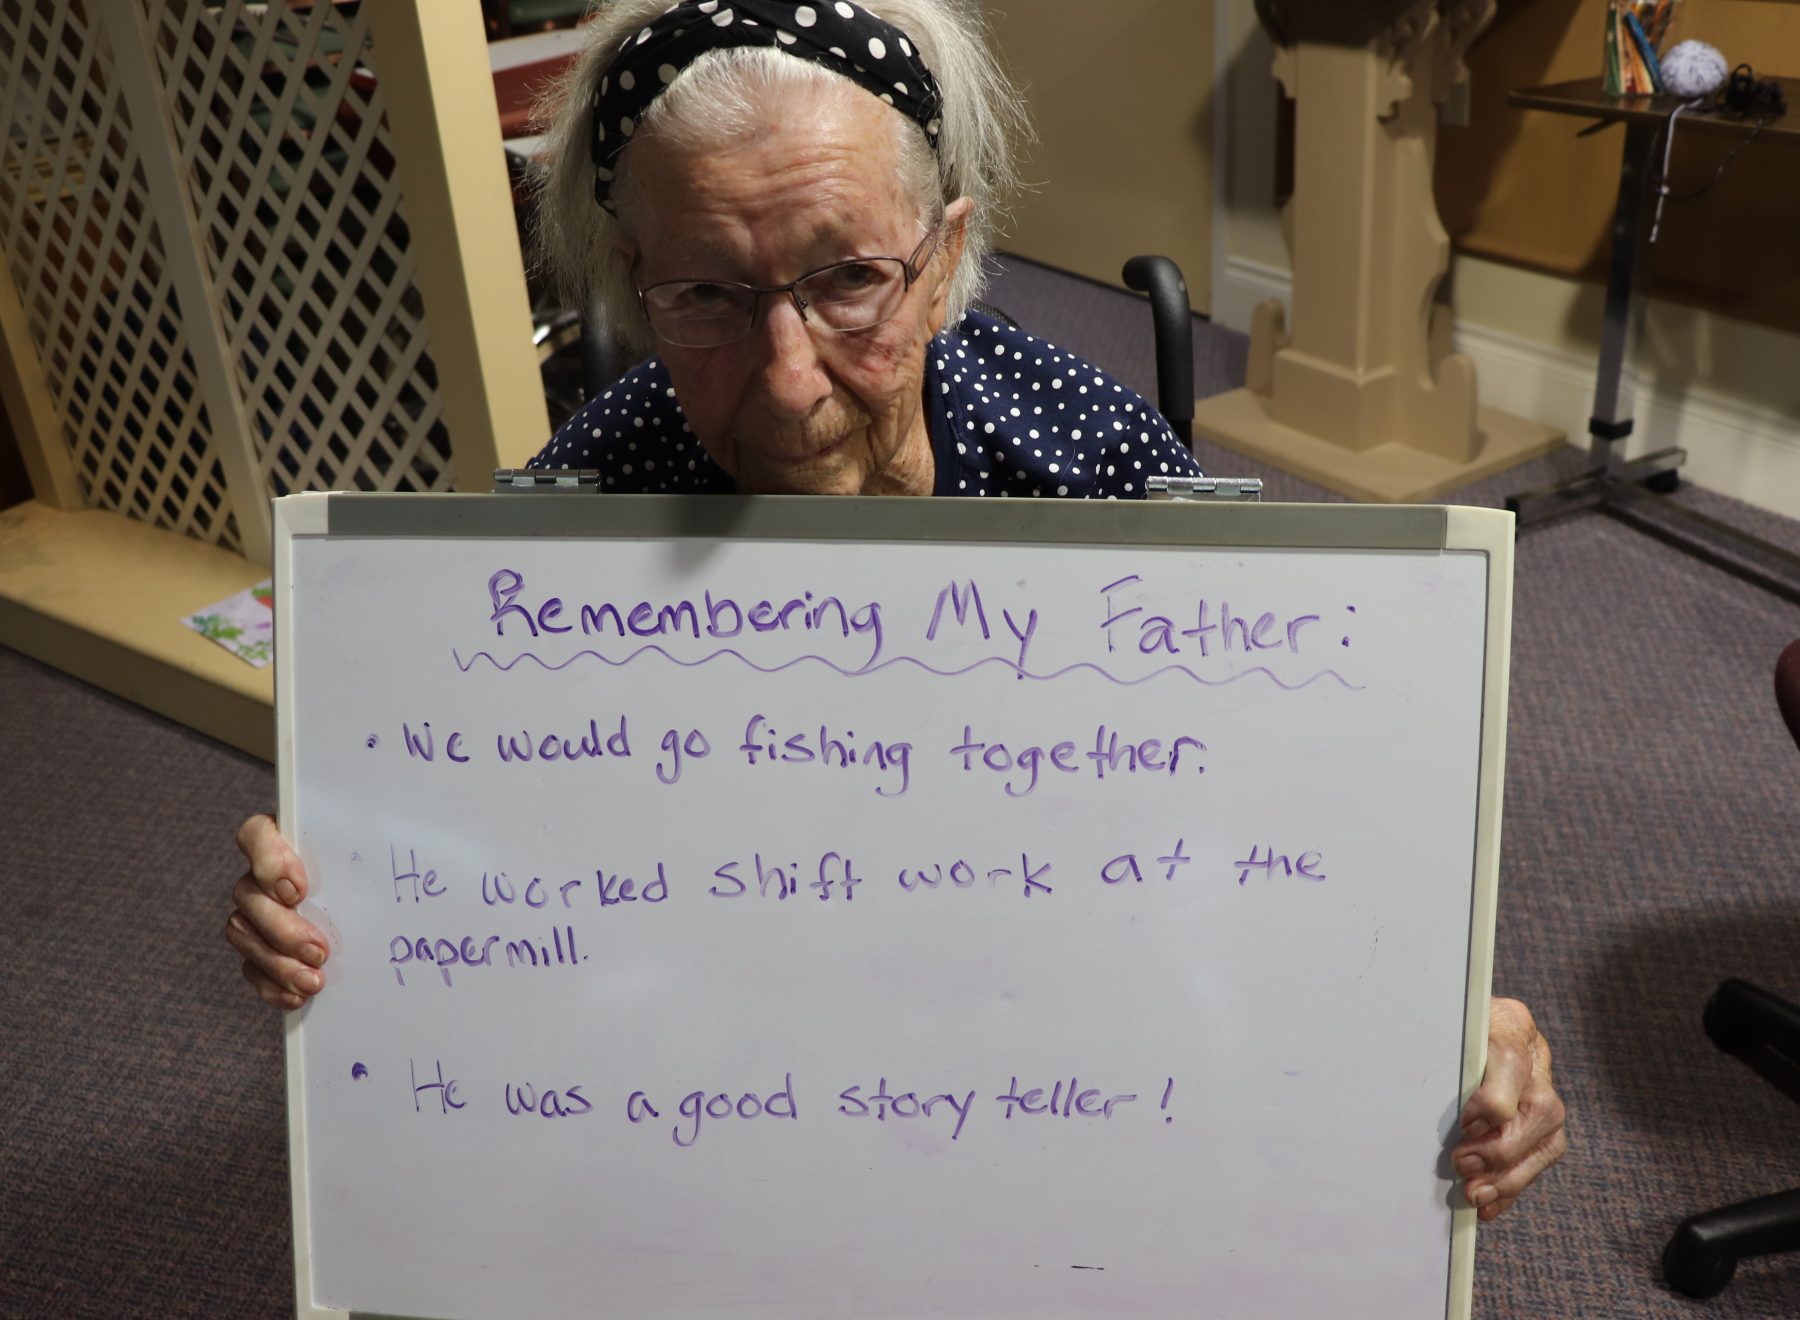 Remembering My Father:
• We would go fishing together.
• He worked shift work at the
papermill.
• He was a good story teller!